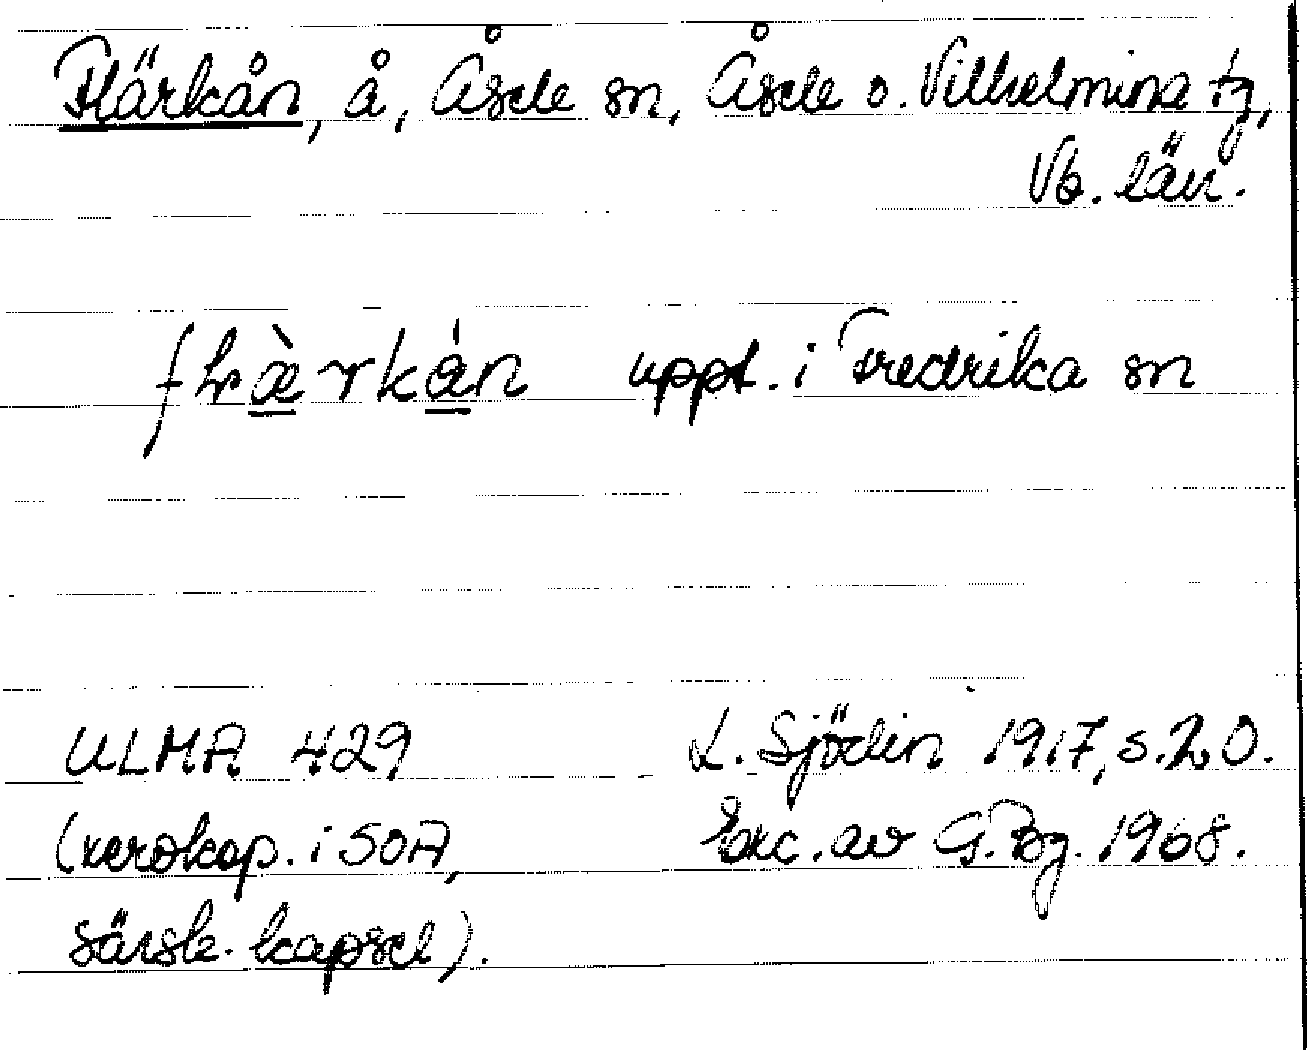 Flärkån, å, Åsele sn, Åsele o. Vilhelmina tg,
Vb. län.
uppt. i Fredrika sn
ULMA 429 L. Sjödin 1917, s. 20.
(xerokop. i SOA, Exc. av G. Bg. 1968.
särsk. kapsel).